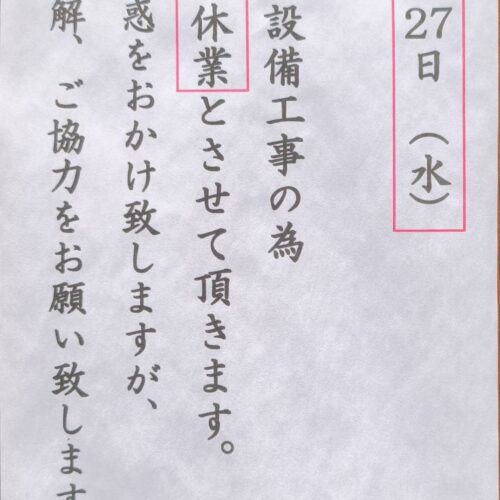 27日（水）
設備工事の為
休業とさせて頂きます。
惑をおかけ致しますが、
解、ご協力をお願い致します